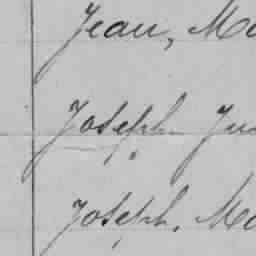 Jean, Ma
Joseph Ju
Joseph, Ma